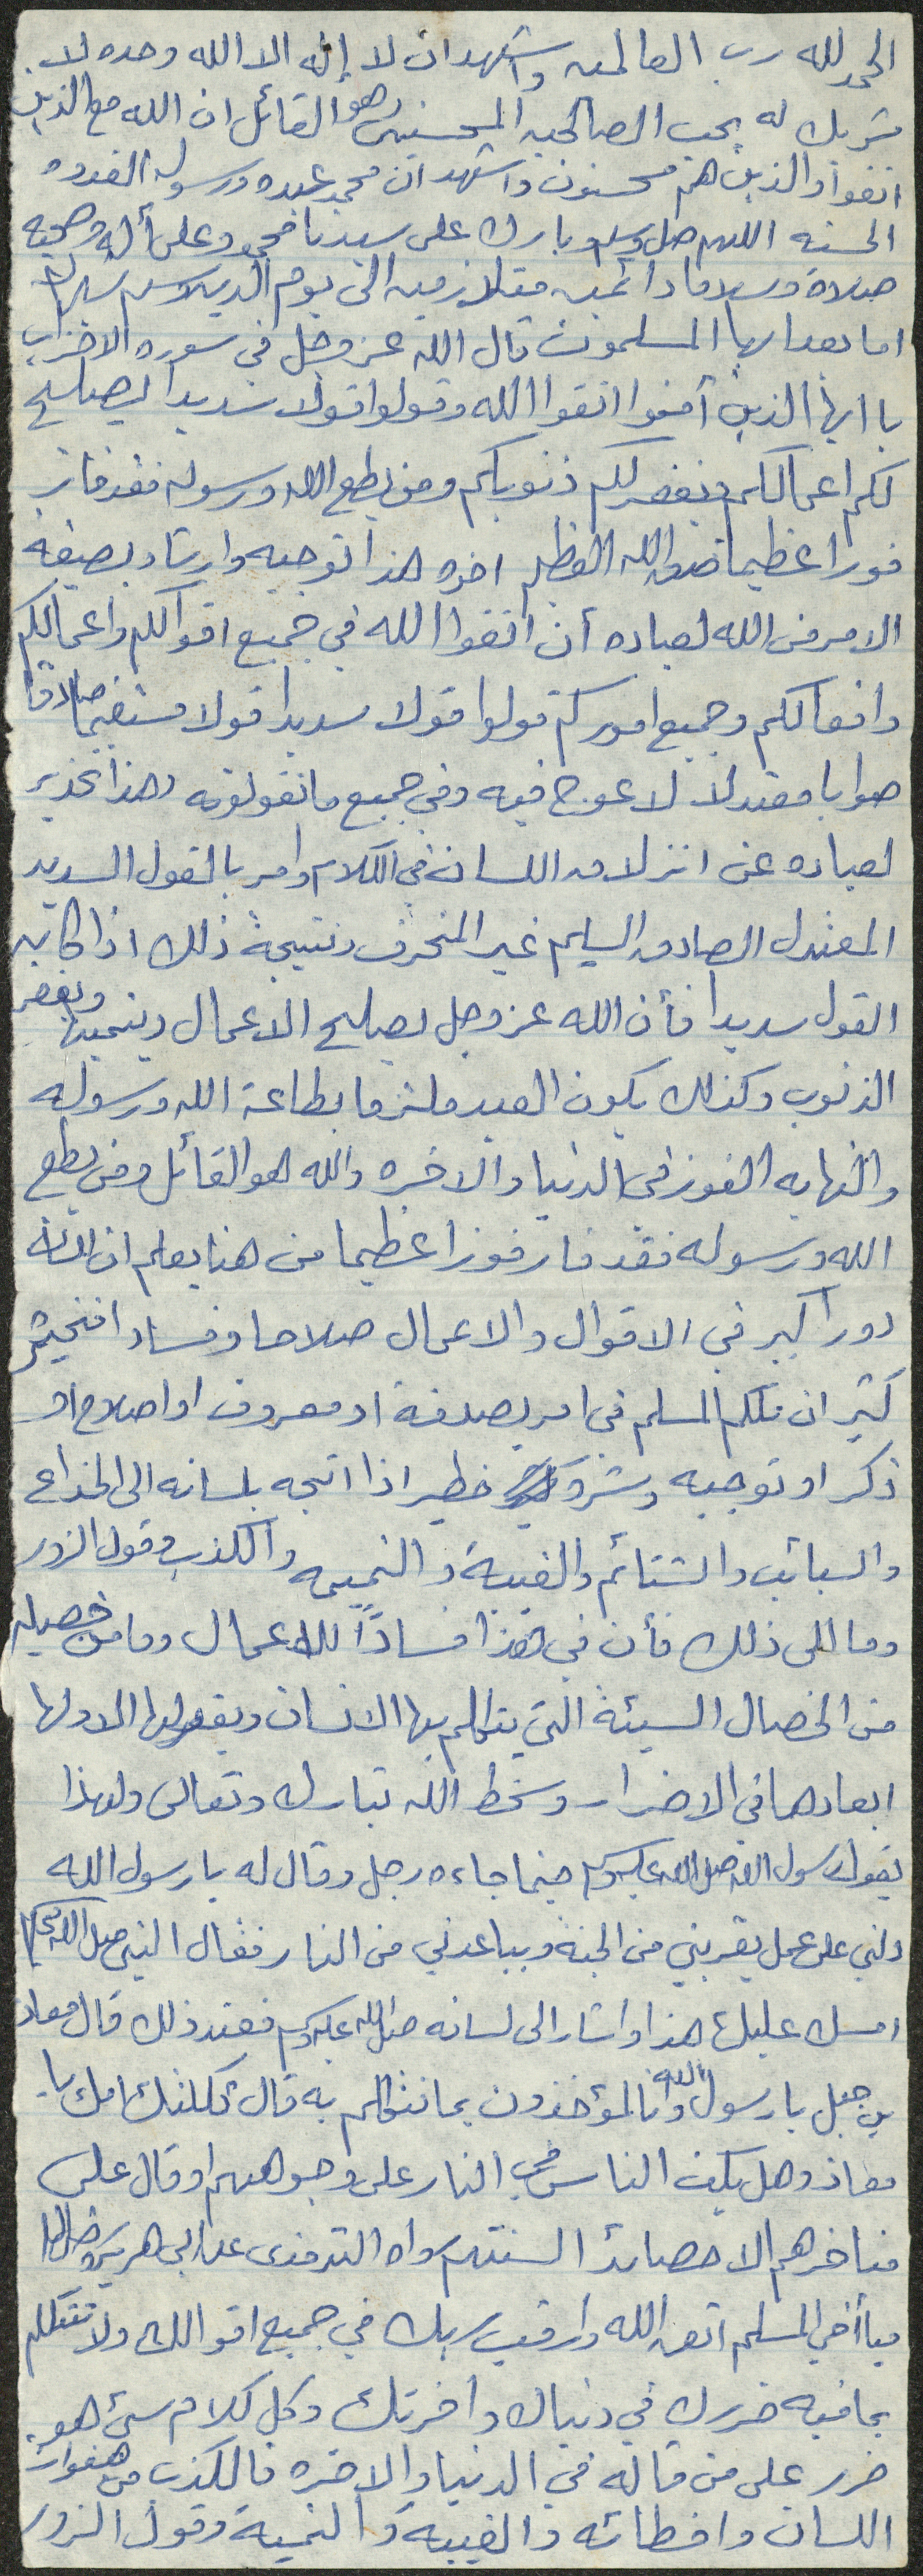 الحمد لله رب العالمين واشهد ان لا إله الا الله وحده لا
شريك له يحب الصالحين المحسنين وهو القائل ان الله مع الذين
اتقوا والذين هم محسنون واشهد ان محمد عبده ورسوله القدوه
الحسنه اللهم صل وسلم وبارك على سيدنا محمد وعلى أله وصحبه
صلاة وسلاما دائمين متلازمين الى يوم الدين وسلم
اما بعد ايها المسلمون قال الله عز وجل في سوره الاحزاب
يا ايها الذين آمنوا اتقوا الله وقولوا قولا سديدا يصلح
لكم اعمالكم ويغفر لكم ذنوبكم ومن يطع الله ورسوله فقد فاز
فوزا عظيما صدق الله العظيم اخوه هذا توجيه وارشاد بصيغة
الامر من الله لعباده أن اتقوا الله في جميع اقوالكم واعمالكم
وافعالكم وجميع اموركم قولوا قولا سديدا قولا مستقيما صادقا
صوابا معتدلا لا عوج فيه وفي جميع ما تقولونه وهذا تحذير
لعباده عن انزلاق اللسان في الكلام وامر بالقول السديد
المعتدل الصادق السليم غير المنحرف ونتيجة ذلك اذا كان
القول سديدا فأن الله عز وجل يصلح الاعمال وينميها ويغفر
الذنوب وكذلك يكون العبد ملتزما بطاعة الله ورسوله
والنهايه الفوز في الدنيا والاخره والله هو القائل ومن يطع
الله ورسوله فقد فاز فوزا عظيما من هنا يعلم ان للسان
دورا كبر في الاقوال والاعمال صلاحا وفسادا فخير
كثير ان تكلم المسلم في امر بصدقة او معروف او اصلاح او
ذكر او توجيه وشر خطير اذا اتجه بلسانه الى الخداع
والسبائب والشتائم والغيبة والنميمه والكذب وقول الزور
وما الى ذلك فأن في هذا فسادًا للاعمال وما من خصيله
من الخصال السيئة التي يتكلم بها الانسان ويقولها الا ولها
ابعادها في الاضرار وسخط الله تبارك وتعالى ولهذا
يقول رسول الله صلى الله عليه وسلم حينما جاءه رجل وقال له يا رسول الله
دلني على عمل يقربني من الجنة ويباعدني من النار فقال النبي صلى الله عليه وسلم
امسك عليك هذا واشار الى لسانه صلى الله عليه وسلم فعند ذلك قال معاذ
بن جبل يا رسول الله وانا لمؤاخذون بما نتكلم به قال ثكلتك امك يا
معاذ وهل يكب الناس في النار على وجوههم او قال على
مناخرهم الا حصائد السنتهم رواه الترمذى عن ابى هريره
فيا أخي المسلم اتق الله وارقب ربك في جميع اقوالك ولا تتكلم
بما فيه ضررك في دنياك واخرتك وكل كلام سيئ هو
ضرر على من قاله في الدنيا والاخره فالكذب من هفوات
اللسان واخطائه والغيبه والنميمة وقول الزور